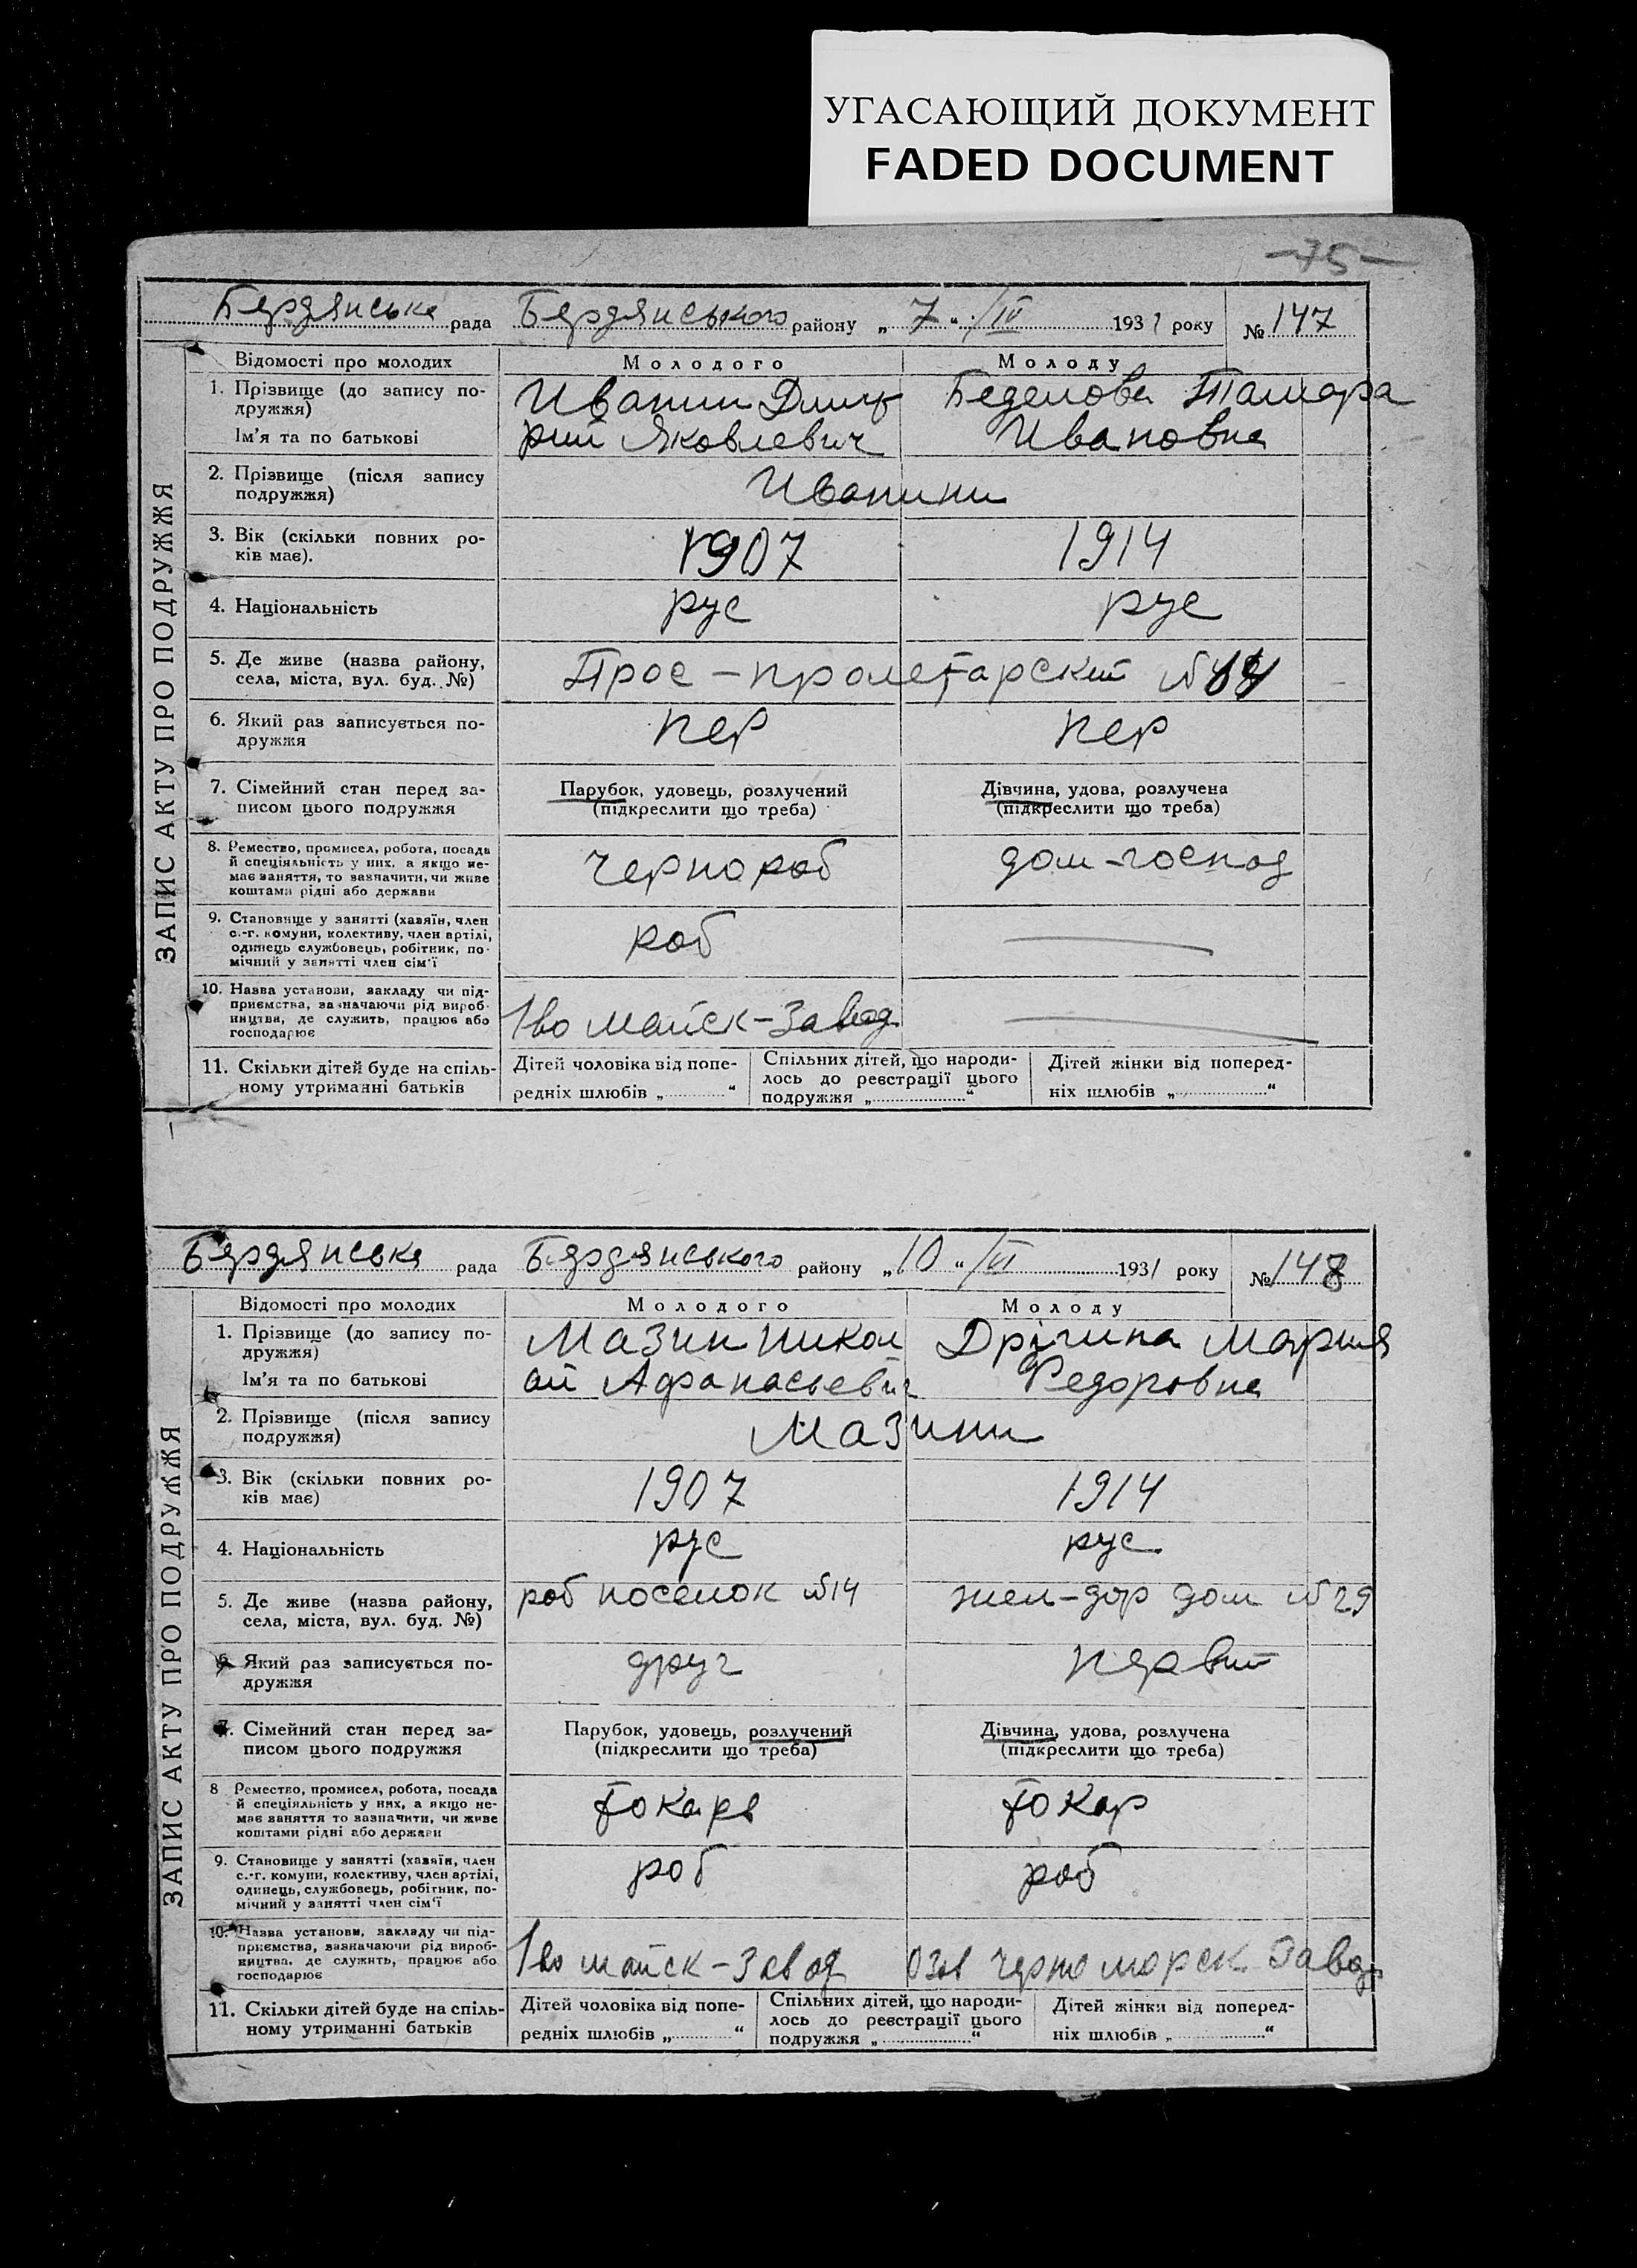 УГАСАЮЩИЙ ДОКУМЕНТ
FADED DOCUMENT
-75-
Бердянська рада Бердянського району „ 7 “ /IV 1931 року № 147
ЗАПИС АКТУ ПРО ПОДРУЖЖЯ
Відомості про молодих Молодого Молоду
1. Прізвище (до запису по-
дружжя)
Ім'я та по батькові
Иванин Дмит
рий Яковлевич
Тамара
Ивановна
2. Прізвище (після запису
подружжя)
Иванини
3. Вік (скільки повних ро-
ків має).
1907 1914
4. Національність рус рус
5. Де живе (назва району,
села, міста, вул. буд. №)
Прос-пролетарский №
6. Який раз записується по-
дружжя
пер пер
7. Сімейний стан перед за-
писом цього подружжя
Парубок, удовець, розлучений
(підкреслити що треба)
Дівчина, удова, розлучена
(підкреслити що треба)
8. Ремество, промисел, робота, посада
й спеціяльність у них, а якщо не-
має заняття, то зазначити, чи живе
коштами рідні або держави
чернороб дом-господ
9. Становище у занятті (хазяїн, член
с.-г. комуни, колективу, член артілі,
одинець службовець, робітник, по-
мічний у занятті член сім'ї
роб
10. Назва установи, закладу чи під-
приємства, зазначаючи рід вироб-
ництва, де служить, працює або
господарює
1во майск-завод
11. Скільки дітей буде на спіль-
ному утриманні батьків
Дітей чоловіка від попе-
редніх шлюбів „ “
Спільних дітей, що народи-
лось до реєстрації цього
подружжя „ “
Дітей жінки від поперед-
ніх шлюбів „ “
Бердянська рада Бердянського району „ 10 “ / 1931 року № 148
ЗАПИС АКТУ ПРО ПОДРУЖЖЯ
Відомості про молодих Молодого Молоду
1. Прізвище (до запису по-
дружжя)
Ім'я та по батькові
Мазин Никол
ай Афанасьевич
Дрігина Мария
Федоровна
2. Прізвище (після запису
подружжя)
Мазини
3. Вік (скільки повних ро-
ків має)
1907 1914
4. Національність рус рус
5. Де живе (назва району,
села, міста, вул. буд. №)
роб поселок №14 жел-дор дом №29
6. Який раз записується по-
дружжя
друг первий
7. Сімейний стан перед за-
писом цього подружжя
Парубок, удовець, розлучений
(підкреслити що треба)
Дівчина, удова, розлучена
(підкреслити що треба)
8 Ремество, промисел, робота, посада
й спеціяльність у них, а якщо не-
має заняття то зазначити, чи живе
коштами рідні або держави
токарь токар
9. Становище у занятті (хазяїн, член
с.-г. комуни, колективу, член артілі,
одинець, службовець, робітник, по-
мічний у занятті член сім'ї
роб роб
10. Назва установи, закладу чи під-
приємства, зазначаючи рід вироб-
ництва, де служить, працює або
господарює
1во майск-завод Озов черноморск Завод
11. Скільки дітей буде на спіль-
ному утриманні батьків
Дітей чоловіка від попе-
редніх шлюбів „ “
Спільних дітей, що народи-
лось до реєстрації цього
подружжя „ “
Дітей жінки від поперед-
ніх шлюбів „ “